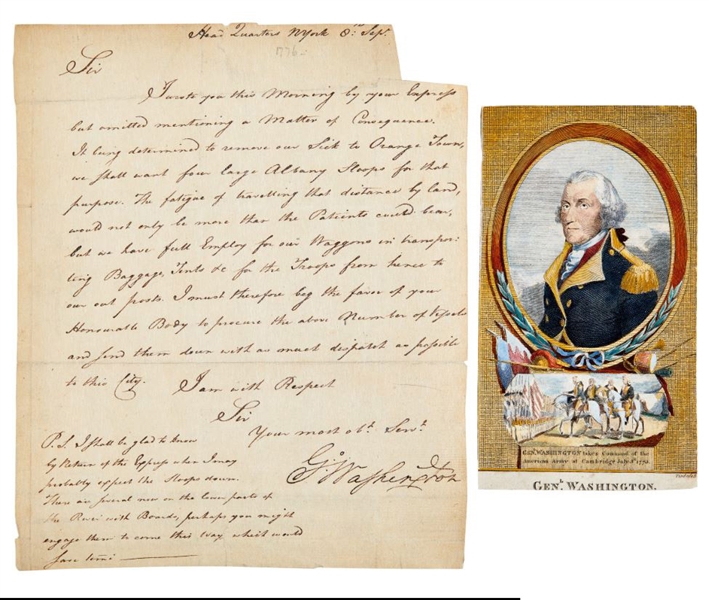 Head Quarters NYork 8th Sepr.
1776
Sir
I wrote you this Morning by your Express
but omitted mentioning a Matter of Consequence.
It being determined to remove our Sick to Orange Town,
we shall want four large Albany Sloops for that
purpose. The fatigue of travelling that distance by land,
would not only be more than the Patients could bear,
but we have full Employ for our Waggons in transpor:
ting Baggage, Tents &c for the Troops from hence to
our out posts. I must therefore beg the favor of your
Honourable Body to procure the above Number of Vessels
and send them down with as much dispatch as possible
to this City. I am with Respect
Sir
Your most obt. Servt.
Go: Washington
P.S. I shall be glad to know
by Return of the Express when I may
probably expect the Sloops down.
There are several now on the lower parts of
the River with Boards, perhaps you might
engage them to come this Way which would
save time
GENL. WASHINGTON takes Command of the
American Army at Cambridge July 3d 1775.
GENL. WASHINGTON.